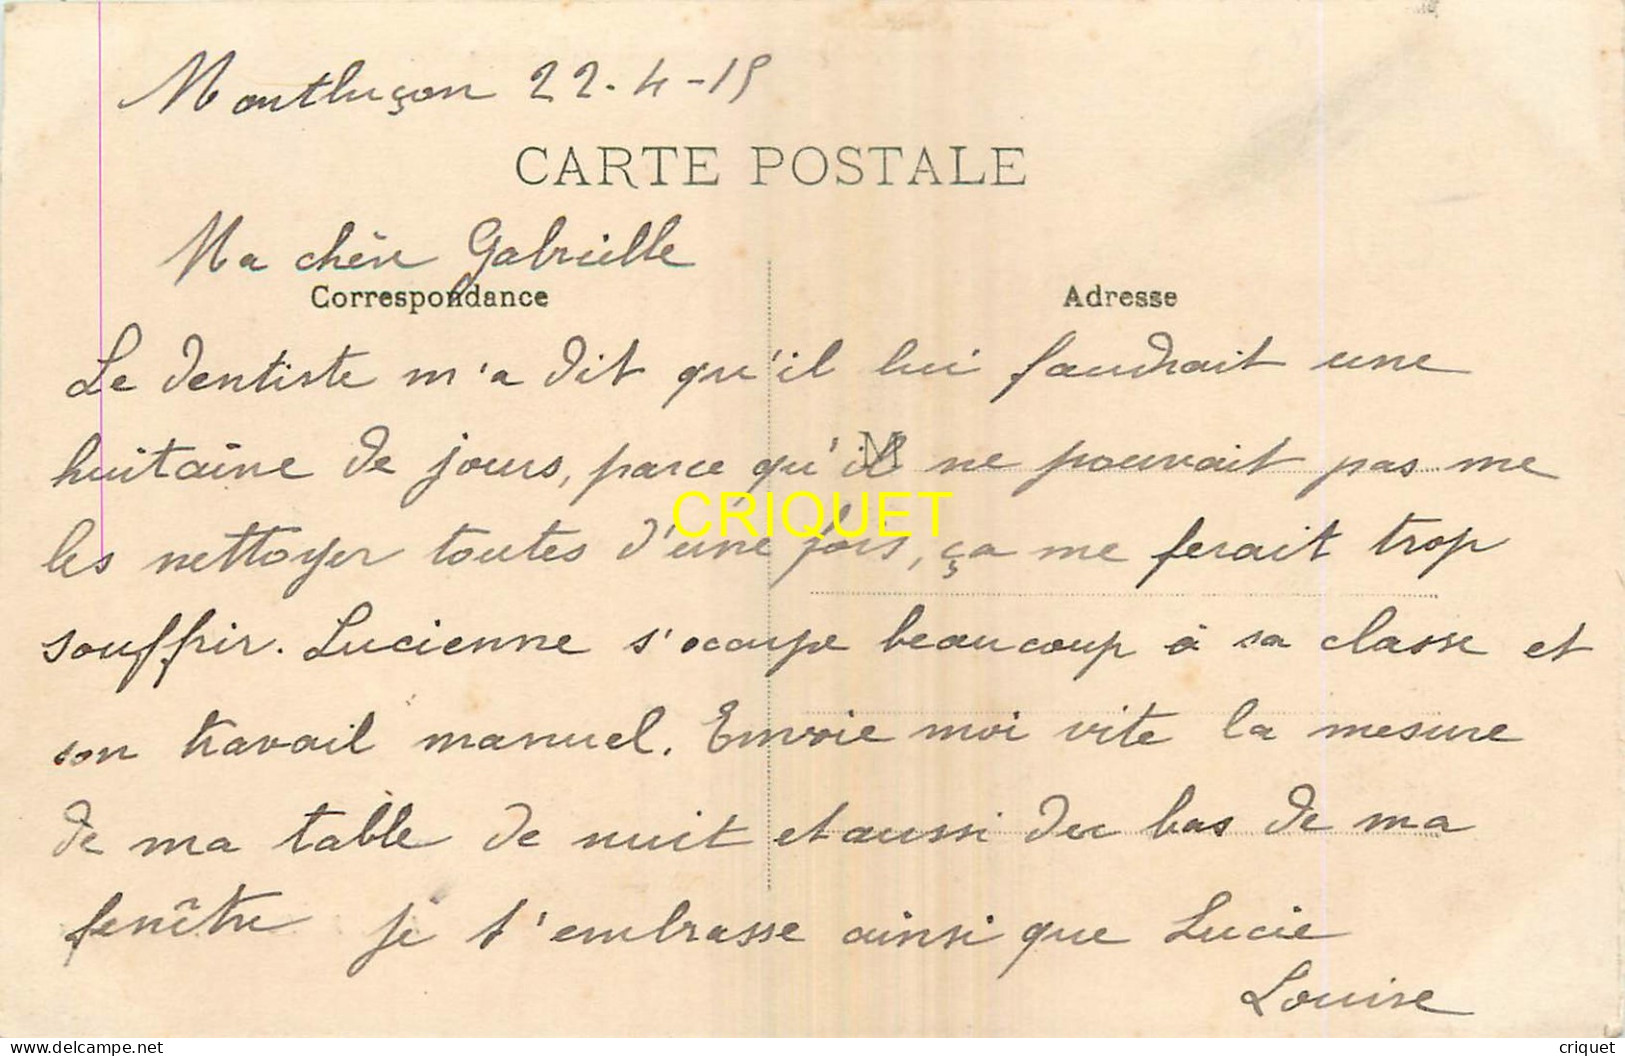 Montluçon 22-4-15
CARTE POSTALE
Ma chère Gabrielle
Correspondance
Adresse
Le dentiste m'a dit qu'il lui faudrait une
huitaine de jours, parce qu'il ne pouvait pas me
M
CRIQUET
les nettoyer toutes d'une fois, ça me ferait trop
souffrir. Lucienne s'occupe beaucoup à sa classe et
son travail manuel. Envoie moi vite la mesure
de ma table de nuit et aussi du bas de ma
fenêtre Je t'embrasse ainsi que Lucie
Louise
criquet
criquet